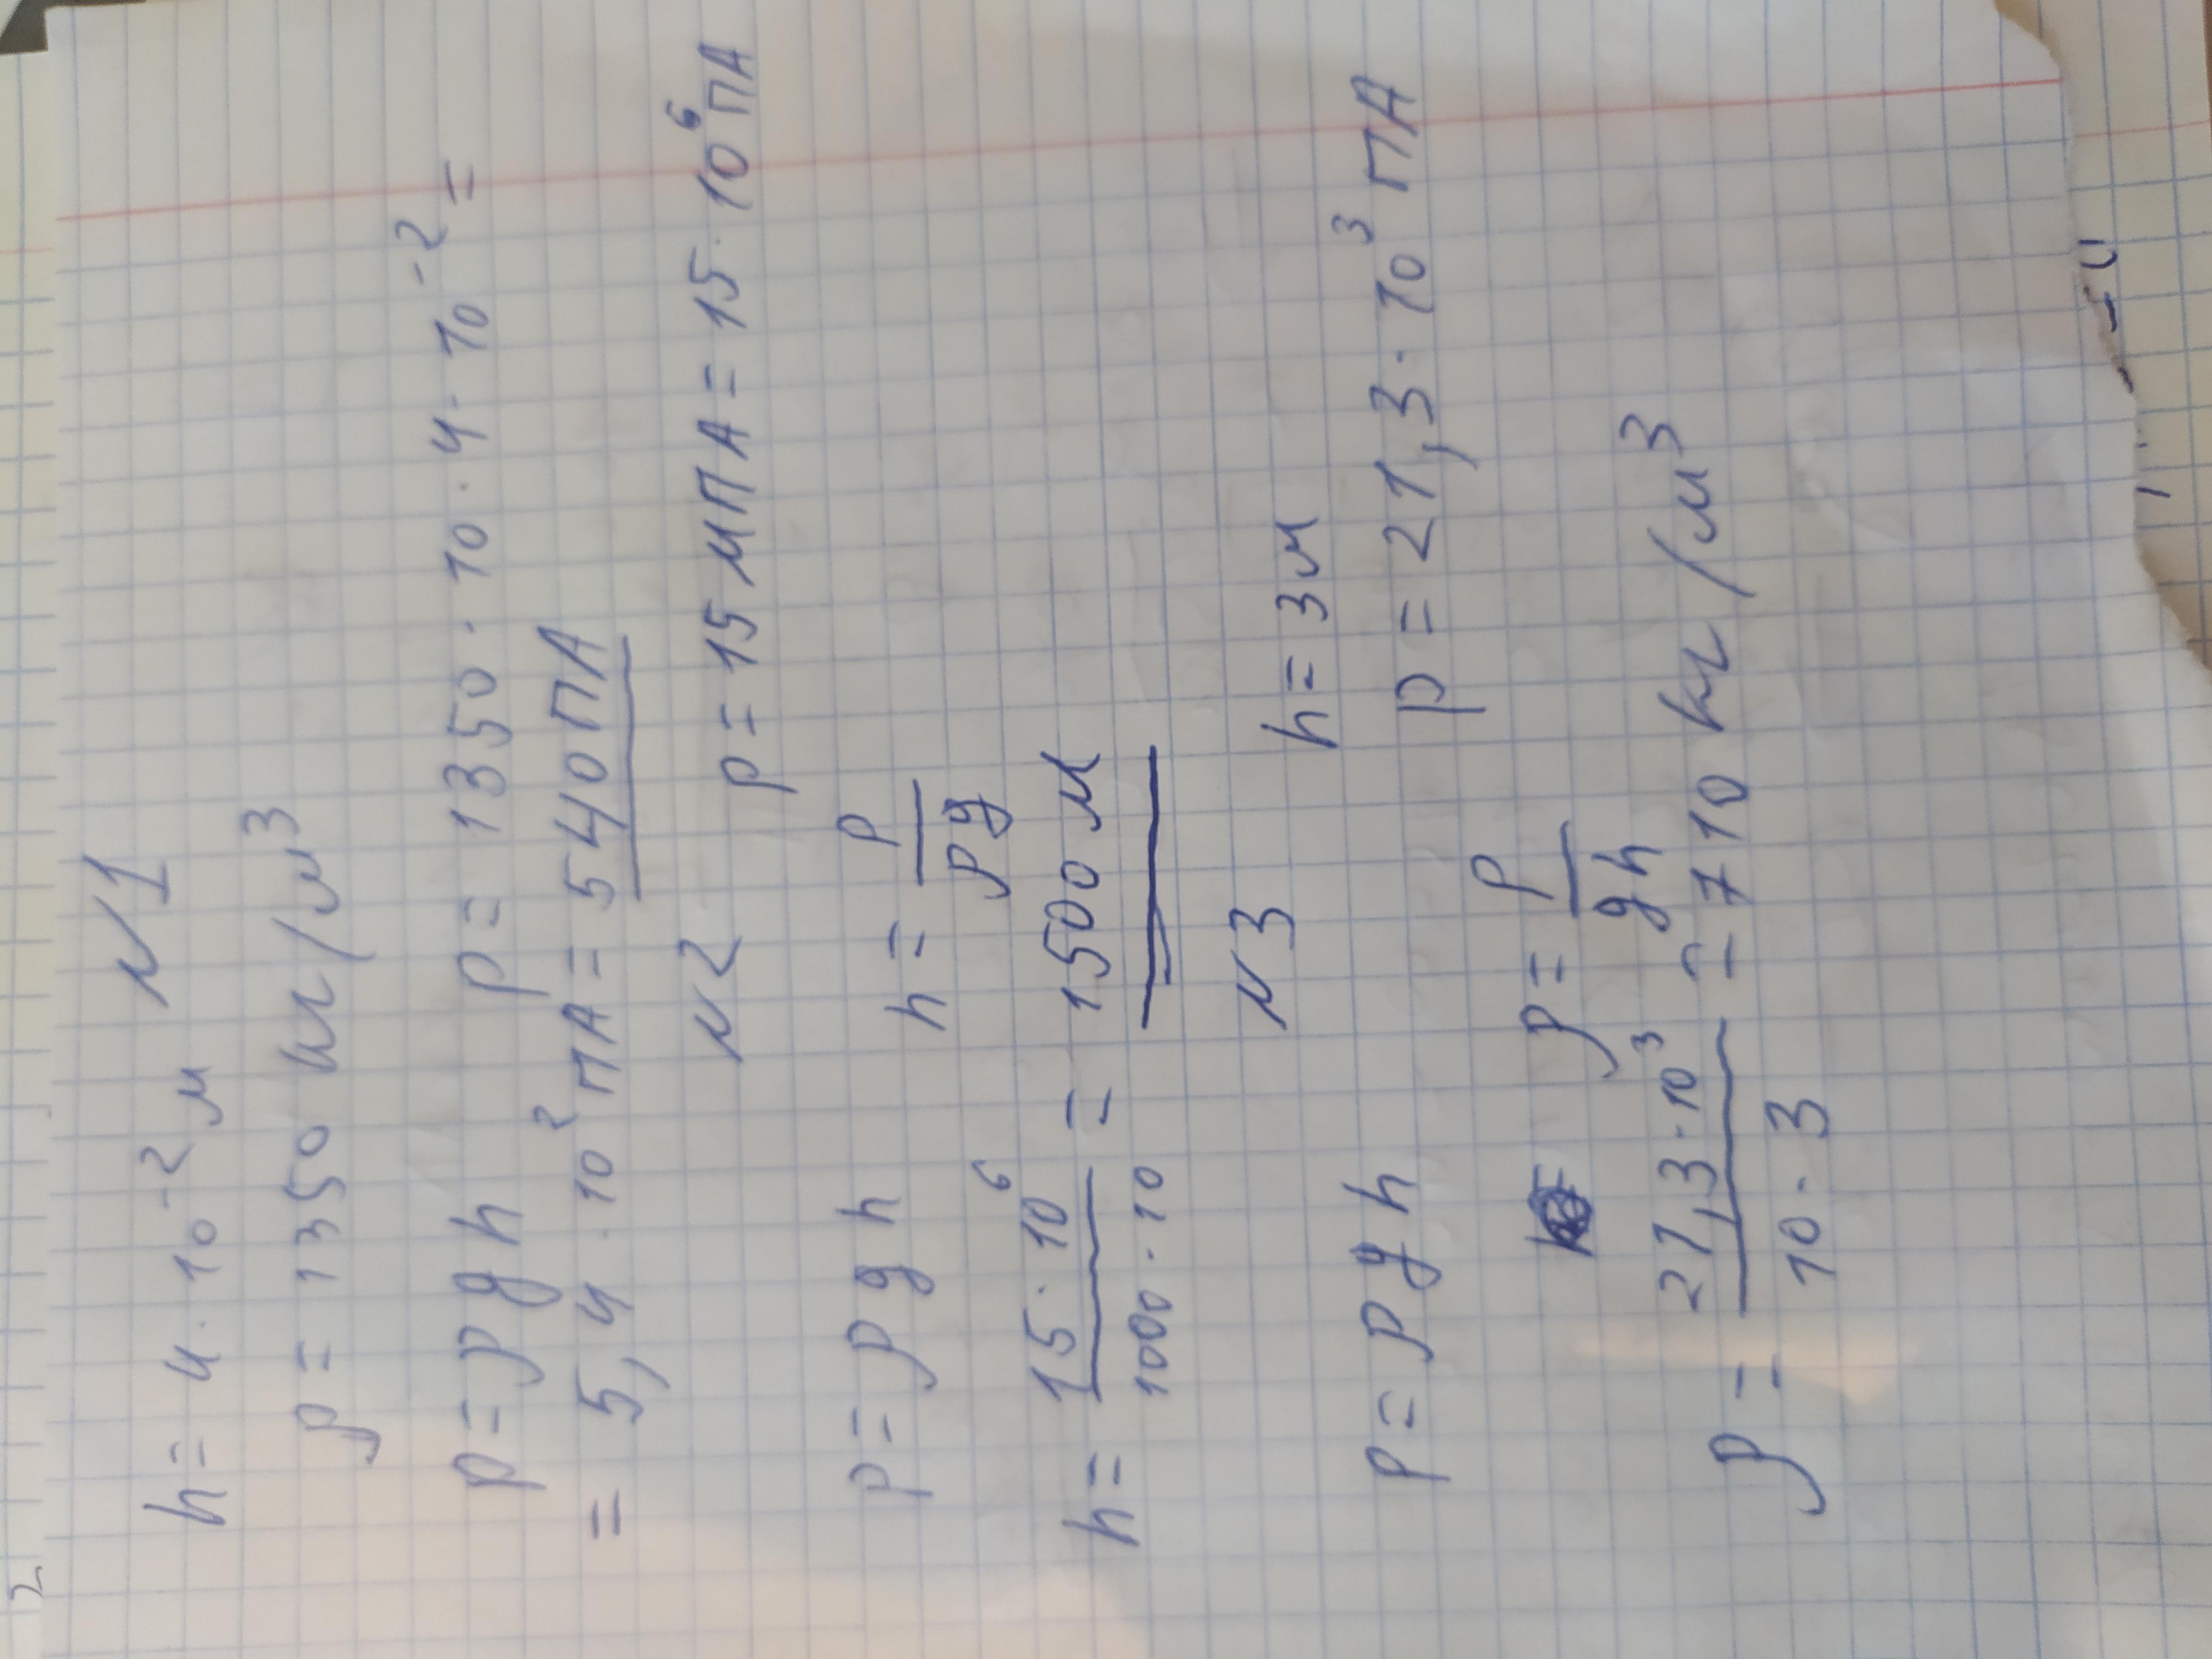 N1
h = 4 · 10⁻² м
ρ = 1350 кг/м³
p = ρ g h p = 1350 · 10 · 4 · 10⁻² =
= 5,4 · 10² ПА = 540 ПА
N2
p = 15 МПА = 15 · 10⁶ ПА
p = ρ g h h = p / ρg
h = 15 · 10⁶ / 1000 · 10 = 1500 м
N3
h = 3м
p = ρ g h p = 21,3 · 10³ ПА
ρ = p / gh
ρ = 21,3 · 10³ / 10 · 3 = 710 кг/м³